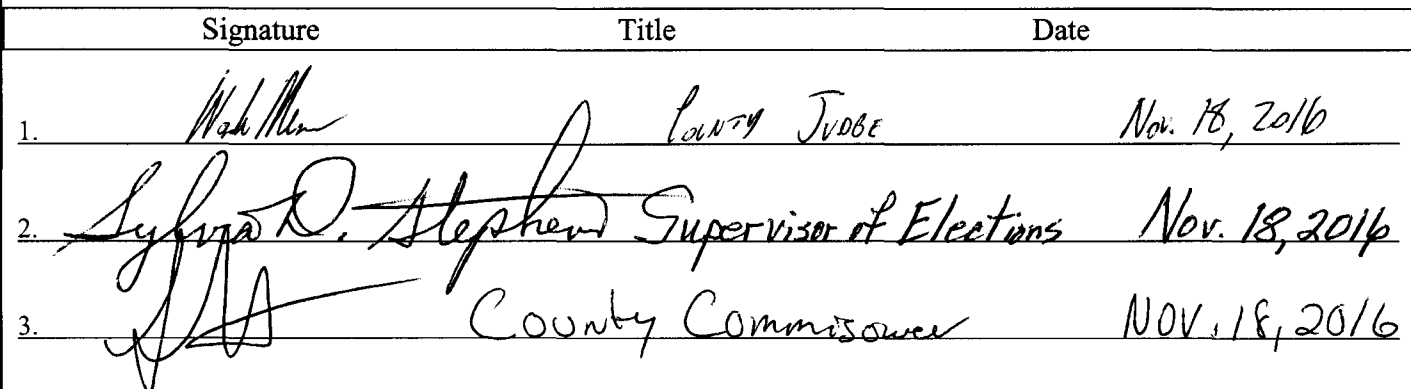 Signature Title Date
1. County Judge Nov. 18, 2016
2. Sylvia D. Stephens Supervisor of Elections Nov. 18, 2016
3. County Commisower NOV. 18, 2016